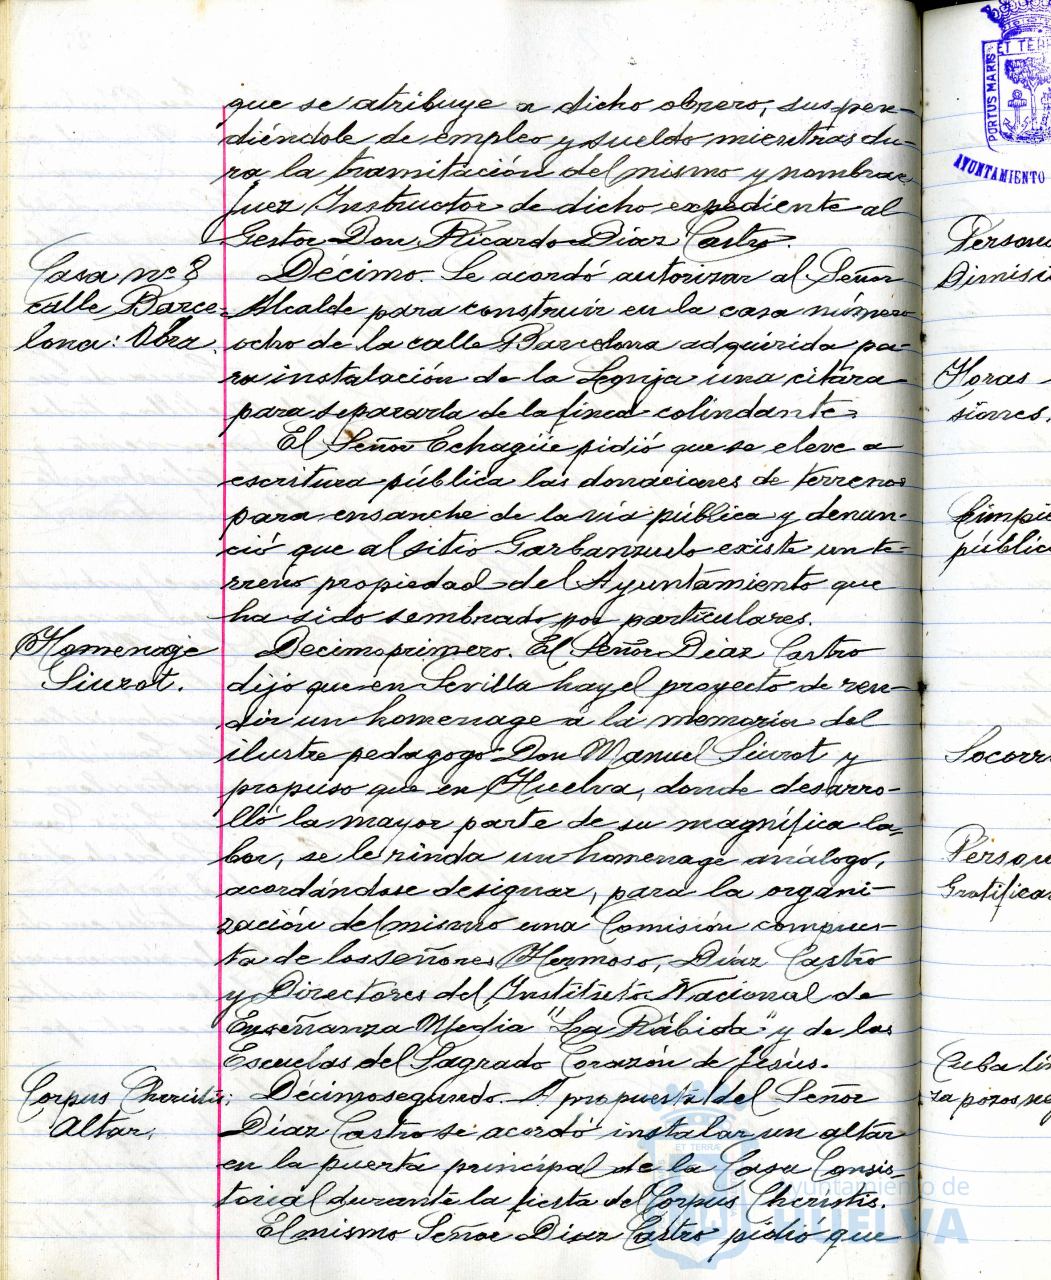 que se atribuye a dicho obrero, suspen-
diéndole de empleo y sueldo mientras du-
ra la tramitación del mismo y nombrar
Juez Instructor de dicho expediente al
Gestor Don Ricardo Díaz Castro.
Casa nº 8
calle Barce-
lona: Obra.
Décimo. Se acordó autorizar al Señor
Alcalde para construir en la casa número
ocho de la calle Barcelona adquirida pa-
ra instalación de la Lonja una citara
para separarla de la finca colindante.
El Señor Echagüe pidió que se eleve a
escritura pública las donaciones de terrenos
para ensanche de la vía pública y denun-
ció que al sitio Garbanzuelo existe un te-
rreno propiedad del Ayuntamiento que
ha sido sembrado por particulares.
Homenage
Siurot.
Decimoprimero. El Señor Diaz Castro
dijo que en Sevilla hay el proyecto de ren-
dir un homenage a la memoria del
ilustre pedagogo Don Manuel Siurot y
propuso que en Huelva, donde desarro-
lló la mayor parte de su magnífica la-
bor, se le rinda un homenage análogo,
acordándose designar, para la organi-
zación del mismo una Comisión compues-
ta de los señores Hermoso, Díaz Castro
y Directores del Instituto Nacional de
Enseñanza Media "La Rábida" y de las
Escuelas del Sagrado Corazón de Jesús.
Corpus Christis:
Altar.
Décimosegundo. A propuesta del Señor
Díaz Castro se acordó instalar un altar
en la puerta principal de la Casa Consis-
torial durante la fiesta del Corpus Christis.
El mismo Señor Diaz Castro pidió que
PORTUS MARIS ET TERR
AYUNTAMIENTO
Person
Dimisi
Horas
siones.
Limpie
públic
Socorr
Person
Gratifica
Cuba lim
za pozos neg
ET TERRÆ
Ayuntamiento de
HUELVA